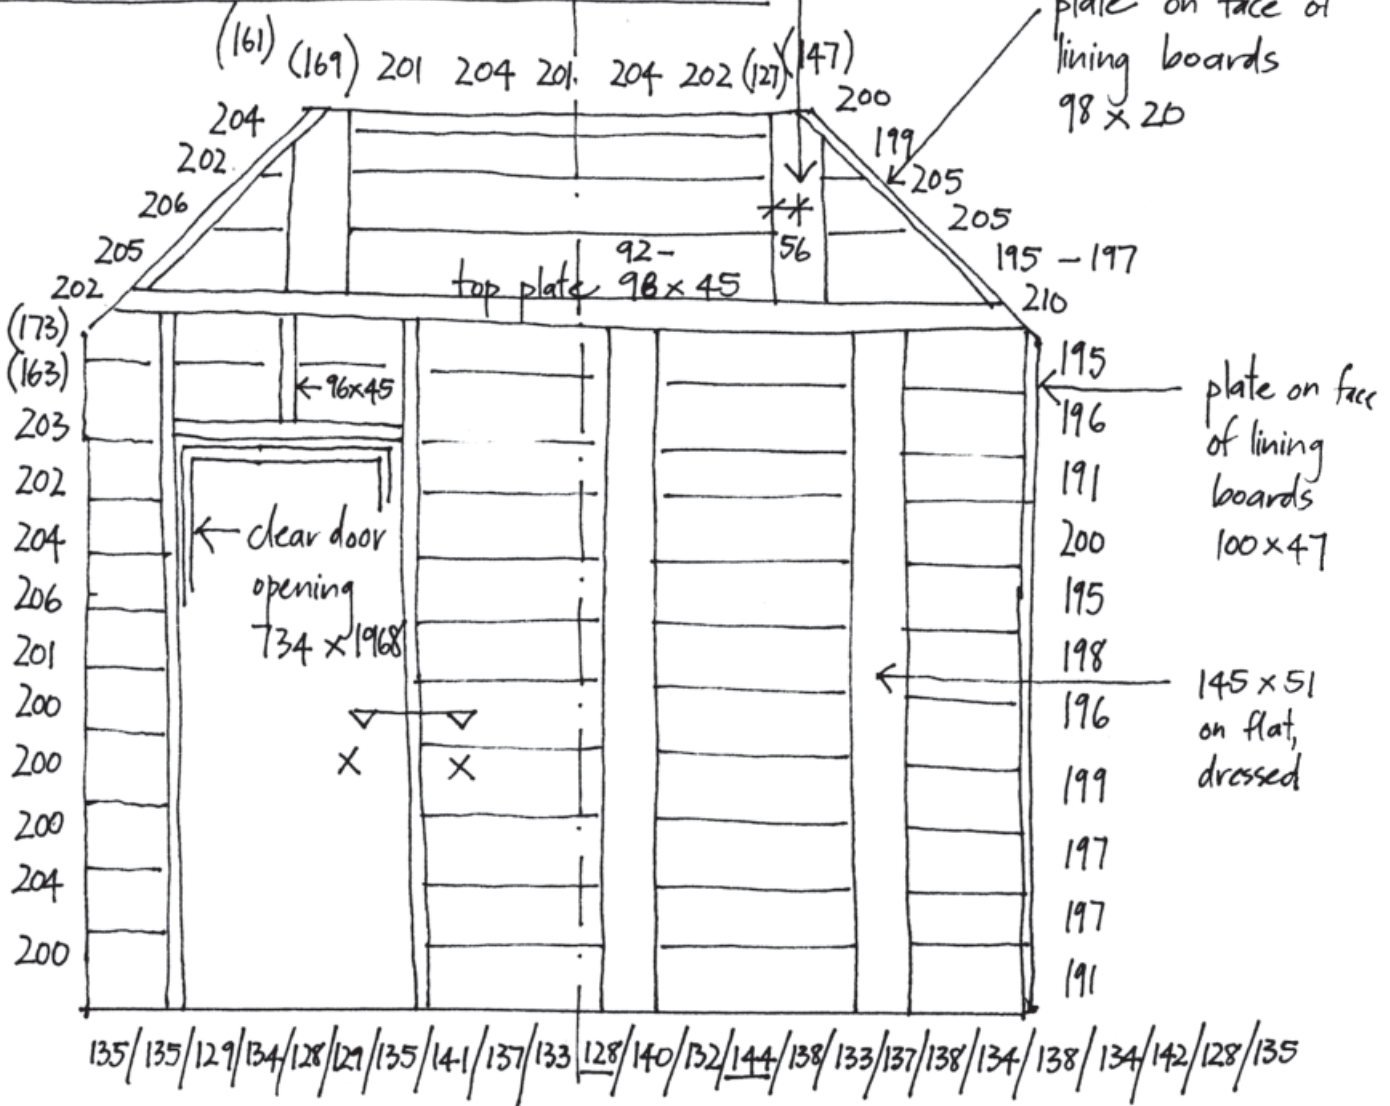 plate on face of
lining boards
98 x 20
(161)
(169) 201 204 201 204 202 (127) (147)
200
204
199
202
205
206
205
205
56
195 - 197
92-
top plate 98 x 45
202
210
(173)
(163)
203
202
204
206
201
200
200
200
204
200
←96x45
← clear door
opening
734 x 1968
X X
195
196
191
200
195
198
196
199
197
197
191
plate on face
of lining
boards
100 x 47
145 x 51
on flat,
dressed
135/135/129/134/128/129/135/141/137/133/128/140/132/144/138/133/137/138/134/138/134/142/128/135